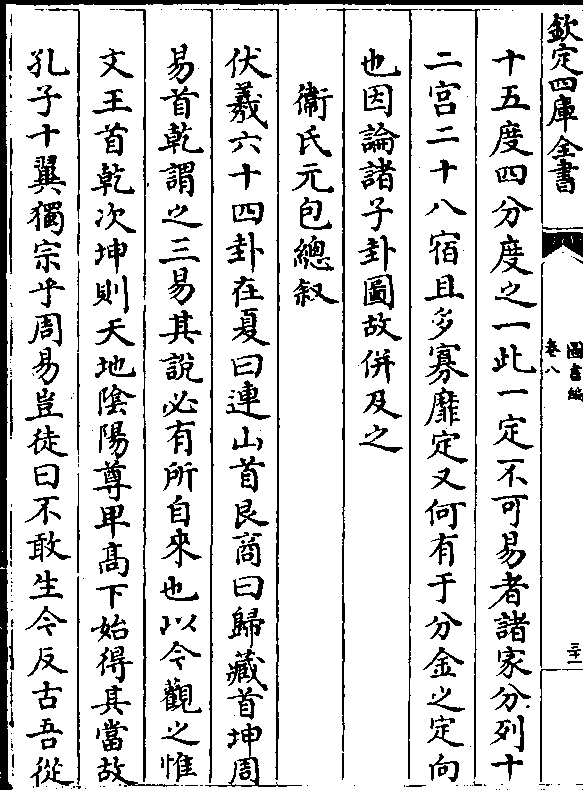 欽定四庫全書
圖書編
卷八
三十一
十五度四分度之一此一定不可易者諸家分列十
二宫二十八宿且多寡靡定又何有于分金之定向
也因論諸子卦圖故併及之
衞氏元包總叙
伏羲六十四卦在夏曰連山首艮商曰歸藏首坤周
易首乾謂之三易其説必有所自來也以今觀之惟
文王首乾次坤則天地陰陽尊卑髙下始得其當故
孔子十翼獨宗乎周易豈徒曰不敢生今反古吾從